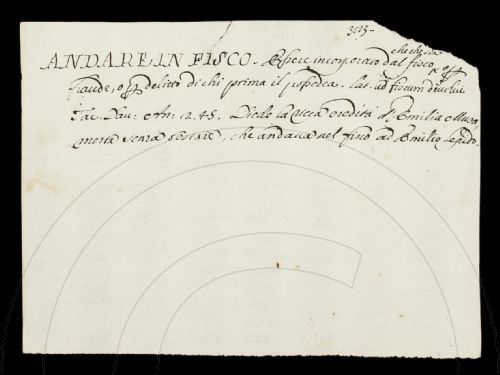 3013.
che che sia
ANDARE IN FISCO. Essere incorporato dal fisco o p
fraude, o p delitto di chi prima il possedea. Lat. ad fiscum devolvi
Tac. Dav: Ann: 2. 45. Diede la ricca eredità d'Emilia Musa,
morta senza testare, che andava nel fisco ad Emilio Lepido.